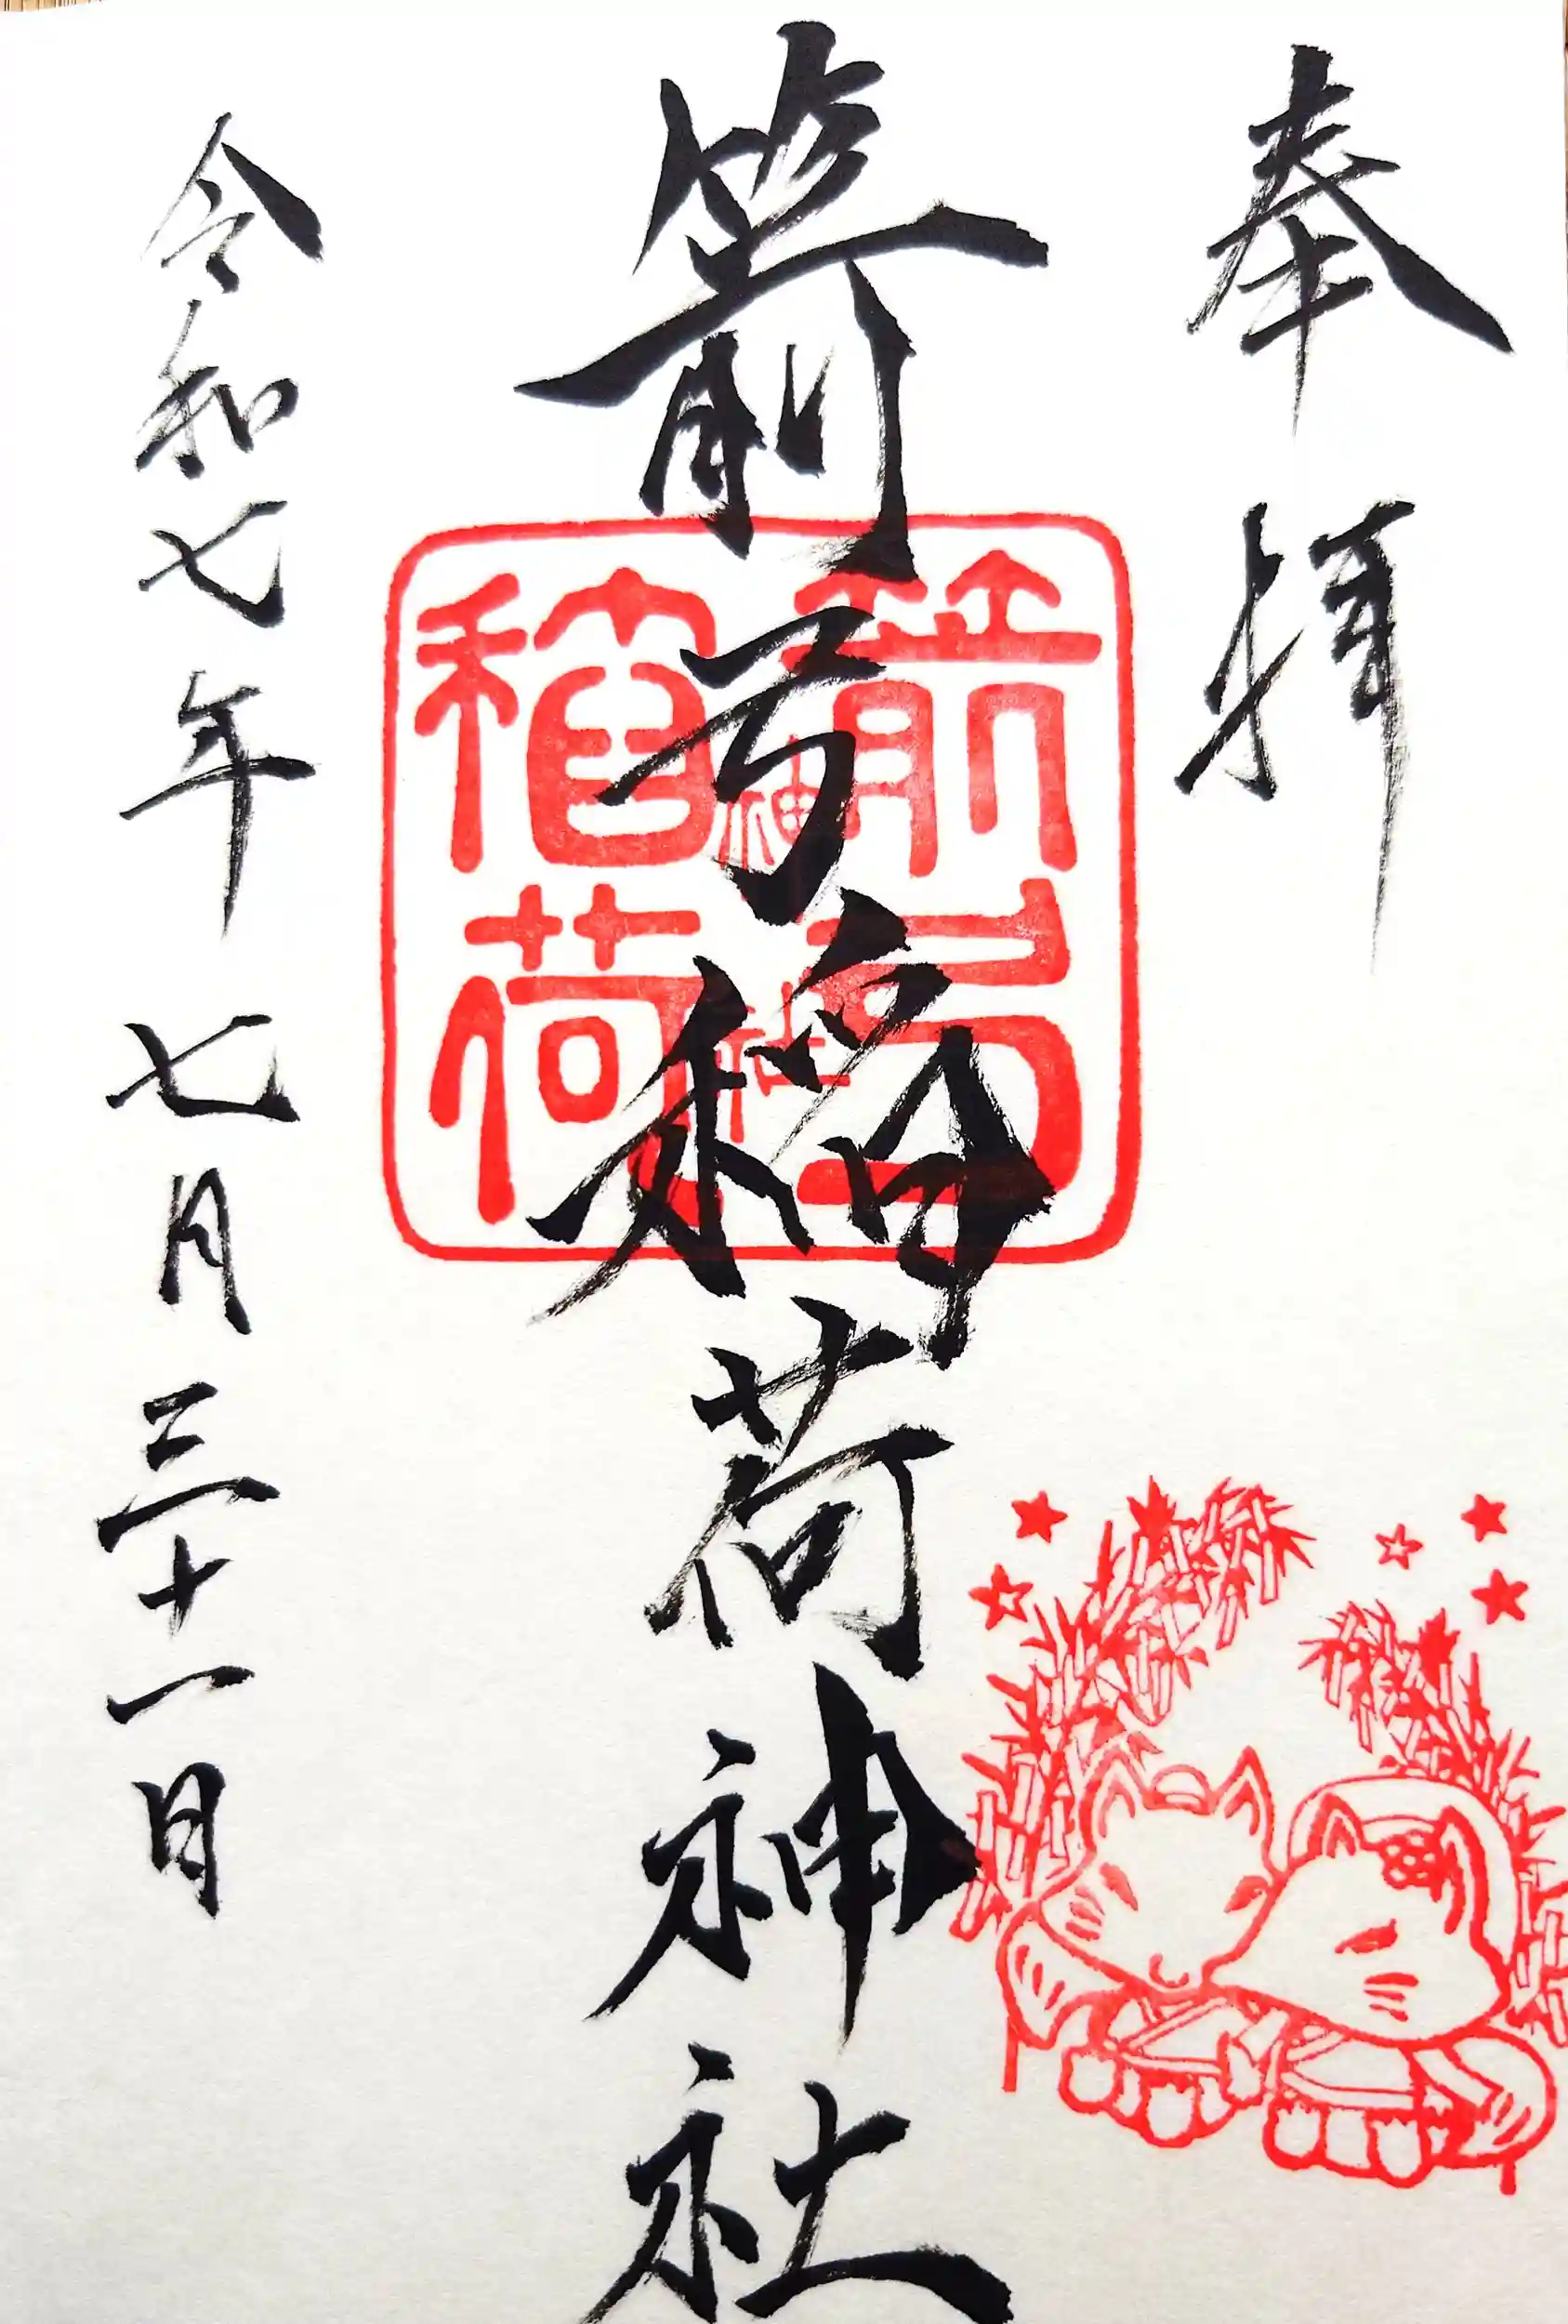 奉拝
箭弓稲荷神社
箭弓稲荷神社
令和七年七月三十一日